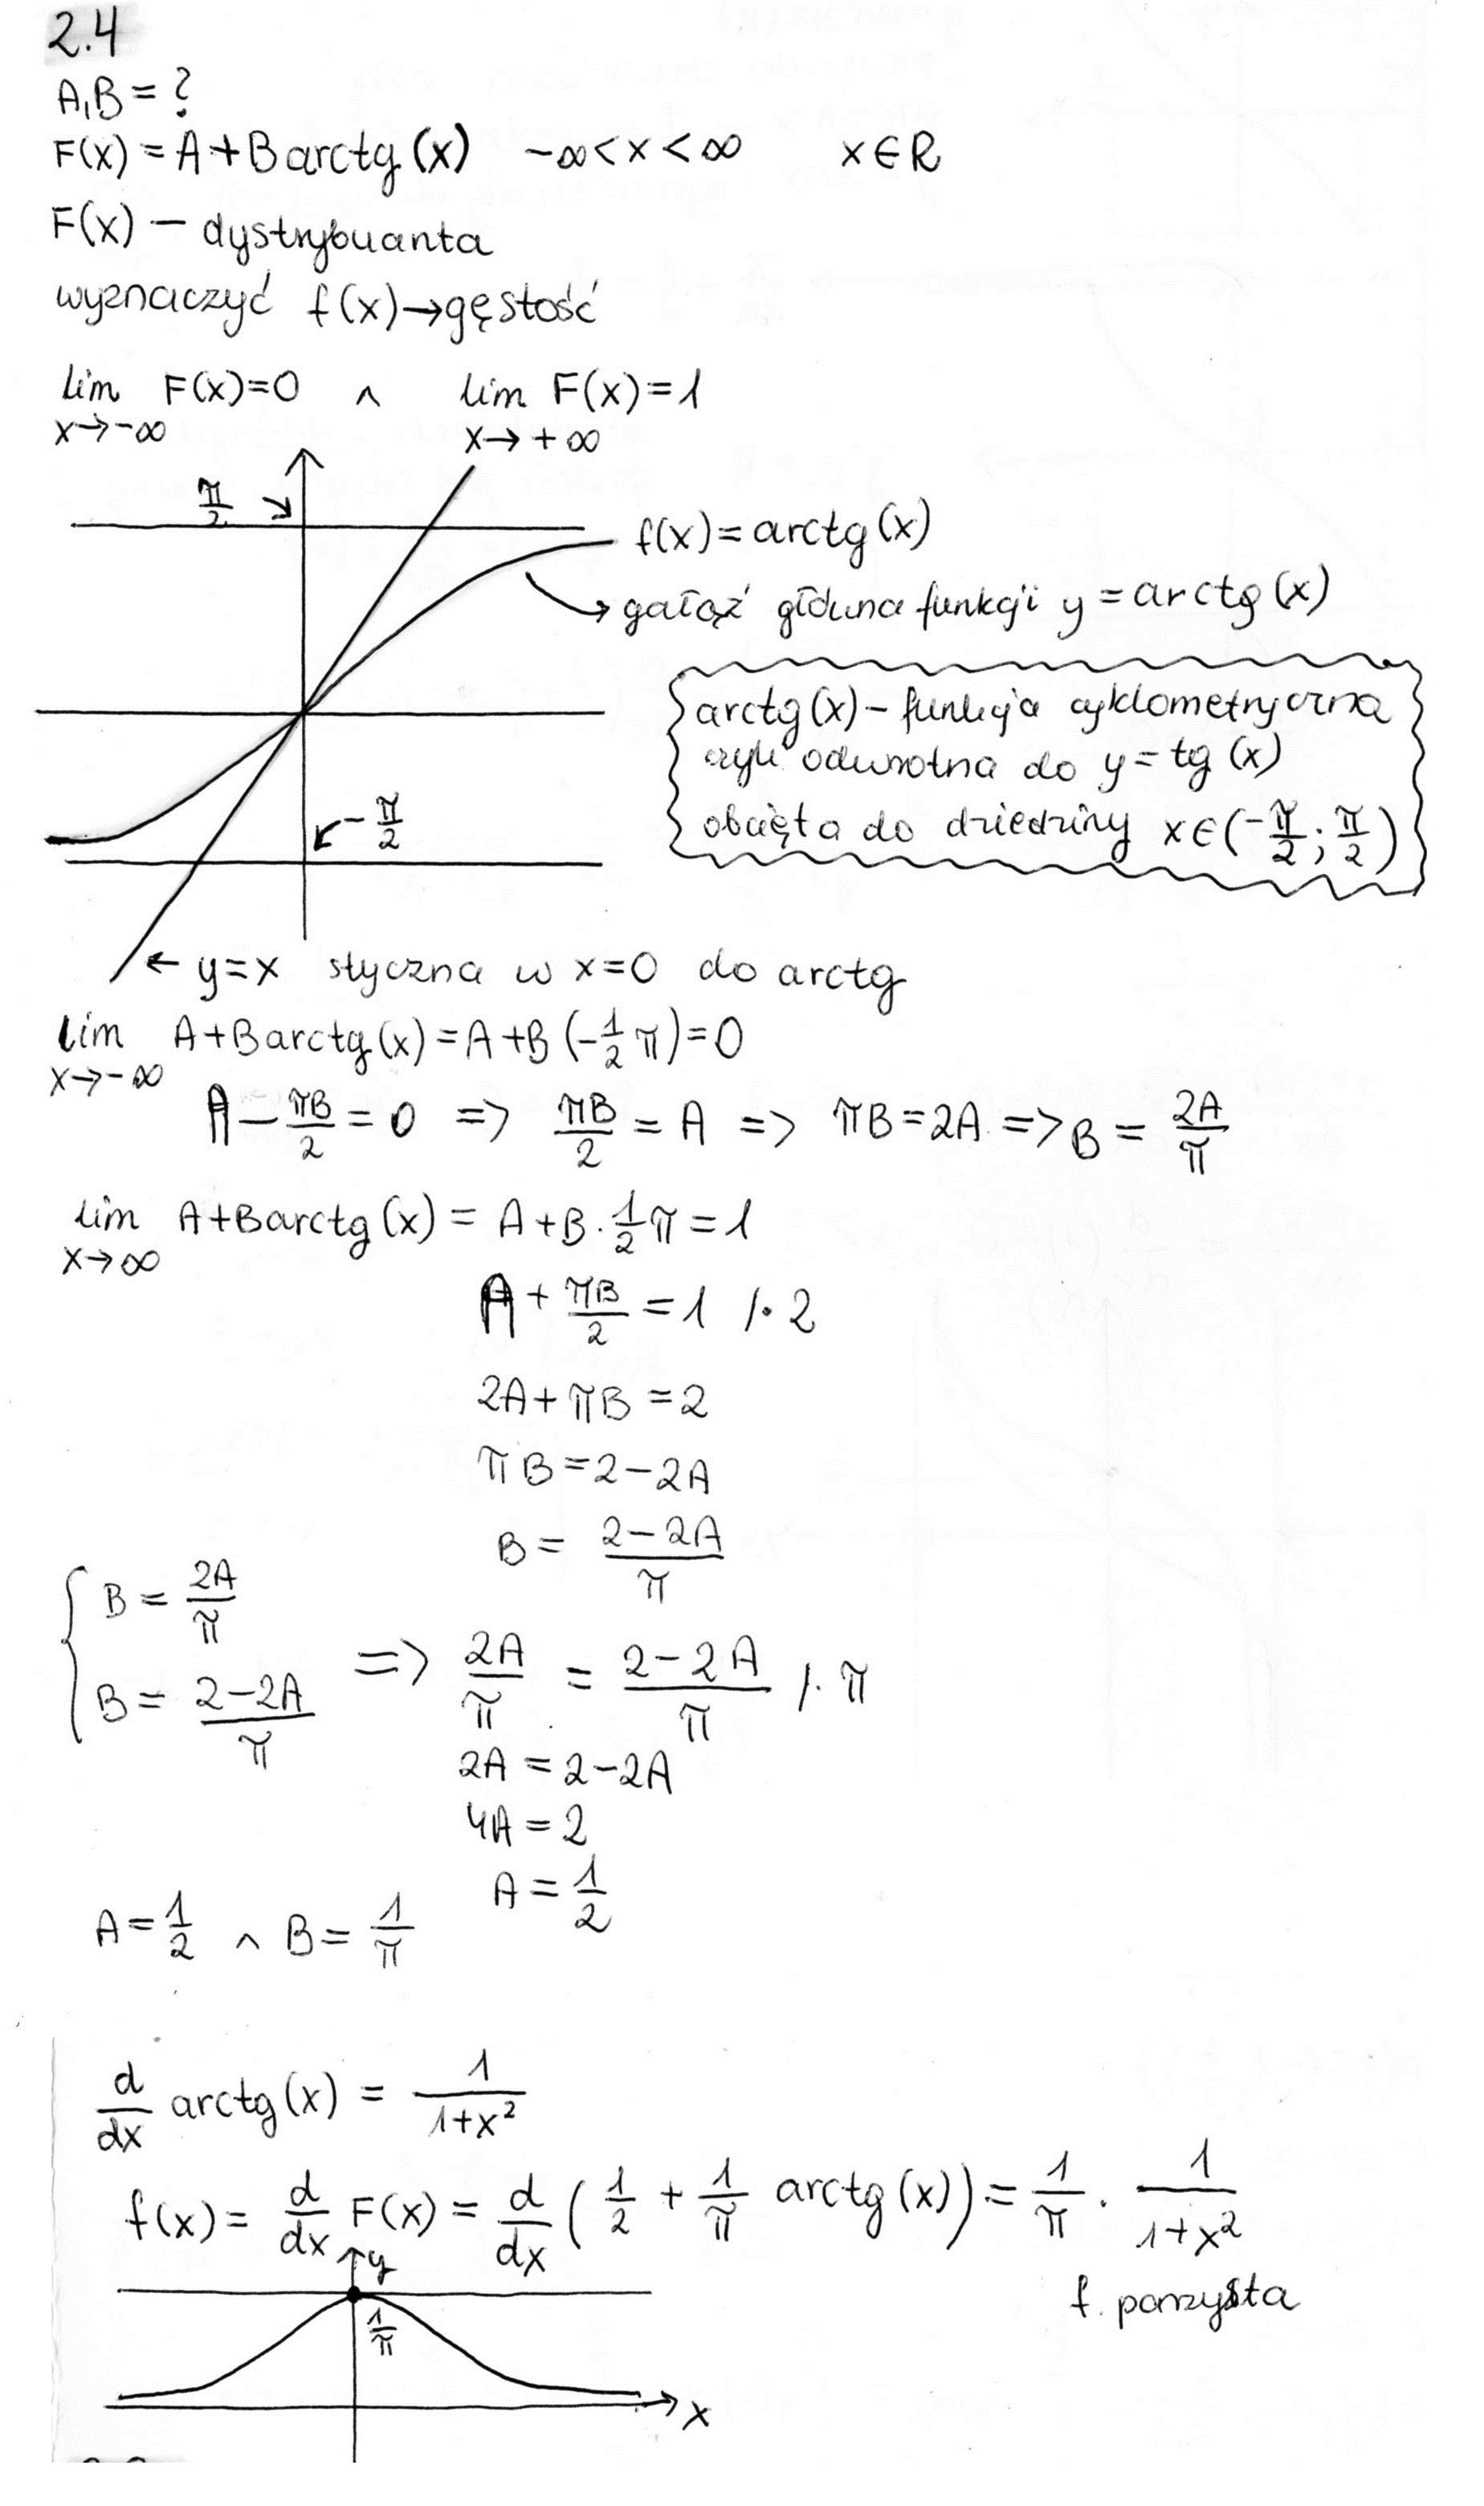 2.4
A,B = ?
F(x) = A + B arctg (x) -∞ < x < ∞ x ∈ R
F(x) - dystrybuanta
wyznaczyć f(x) → gęstość
lim F(x)=0 ∧ lim F(x)=1
x→-∞ x→+∞
π/2
f(x) = arctg(x)
gałąź główna funkcji y = arctg(x)
arctg(x) - funkcja cyklometryczna
czyli odwrotna do y = tg (x)
obcięta do dziedziny x∈(-π/2 ; π/2)
-π/2
← y=x styczna w x=0 do arctg
lim A+Barctg(x) = A+B (-1/2 π) = 0
x→-∞
A - πB/2 = 0 => πB/2 = A => πB = 2A => B = 2A/π
lim A+Barctg(x) = A+B · 1/2 π = 1
x→∞
A + πB/2 = 1 /· 2
2A + πB = 2
πB = 2-2A
B = (2-2A)/π
{ B = 2A/π
B = (2-2A)/π => 2A/π = (2-2A)/π /· π
2A = 2-2A
4A = 2
A = 1/2
A = 1/2 ∧ B = 1/π
d/dx arctg(x) = 1/(1+x²)
f(x) = d/dx F(x) = d/dx (1/2 + 1/π arctg(x)) = 1/π · 1/(1+x²)
f. parzysta
y
1/π
x